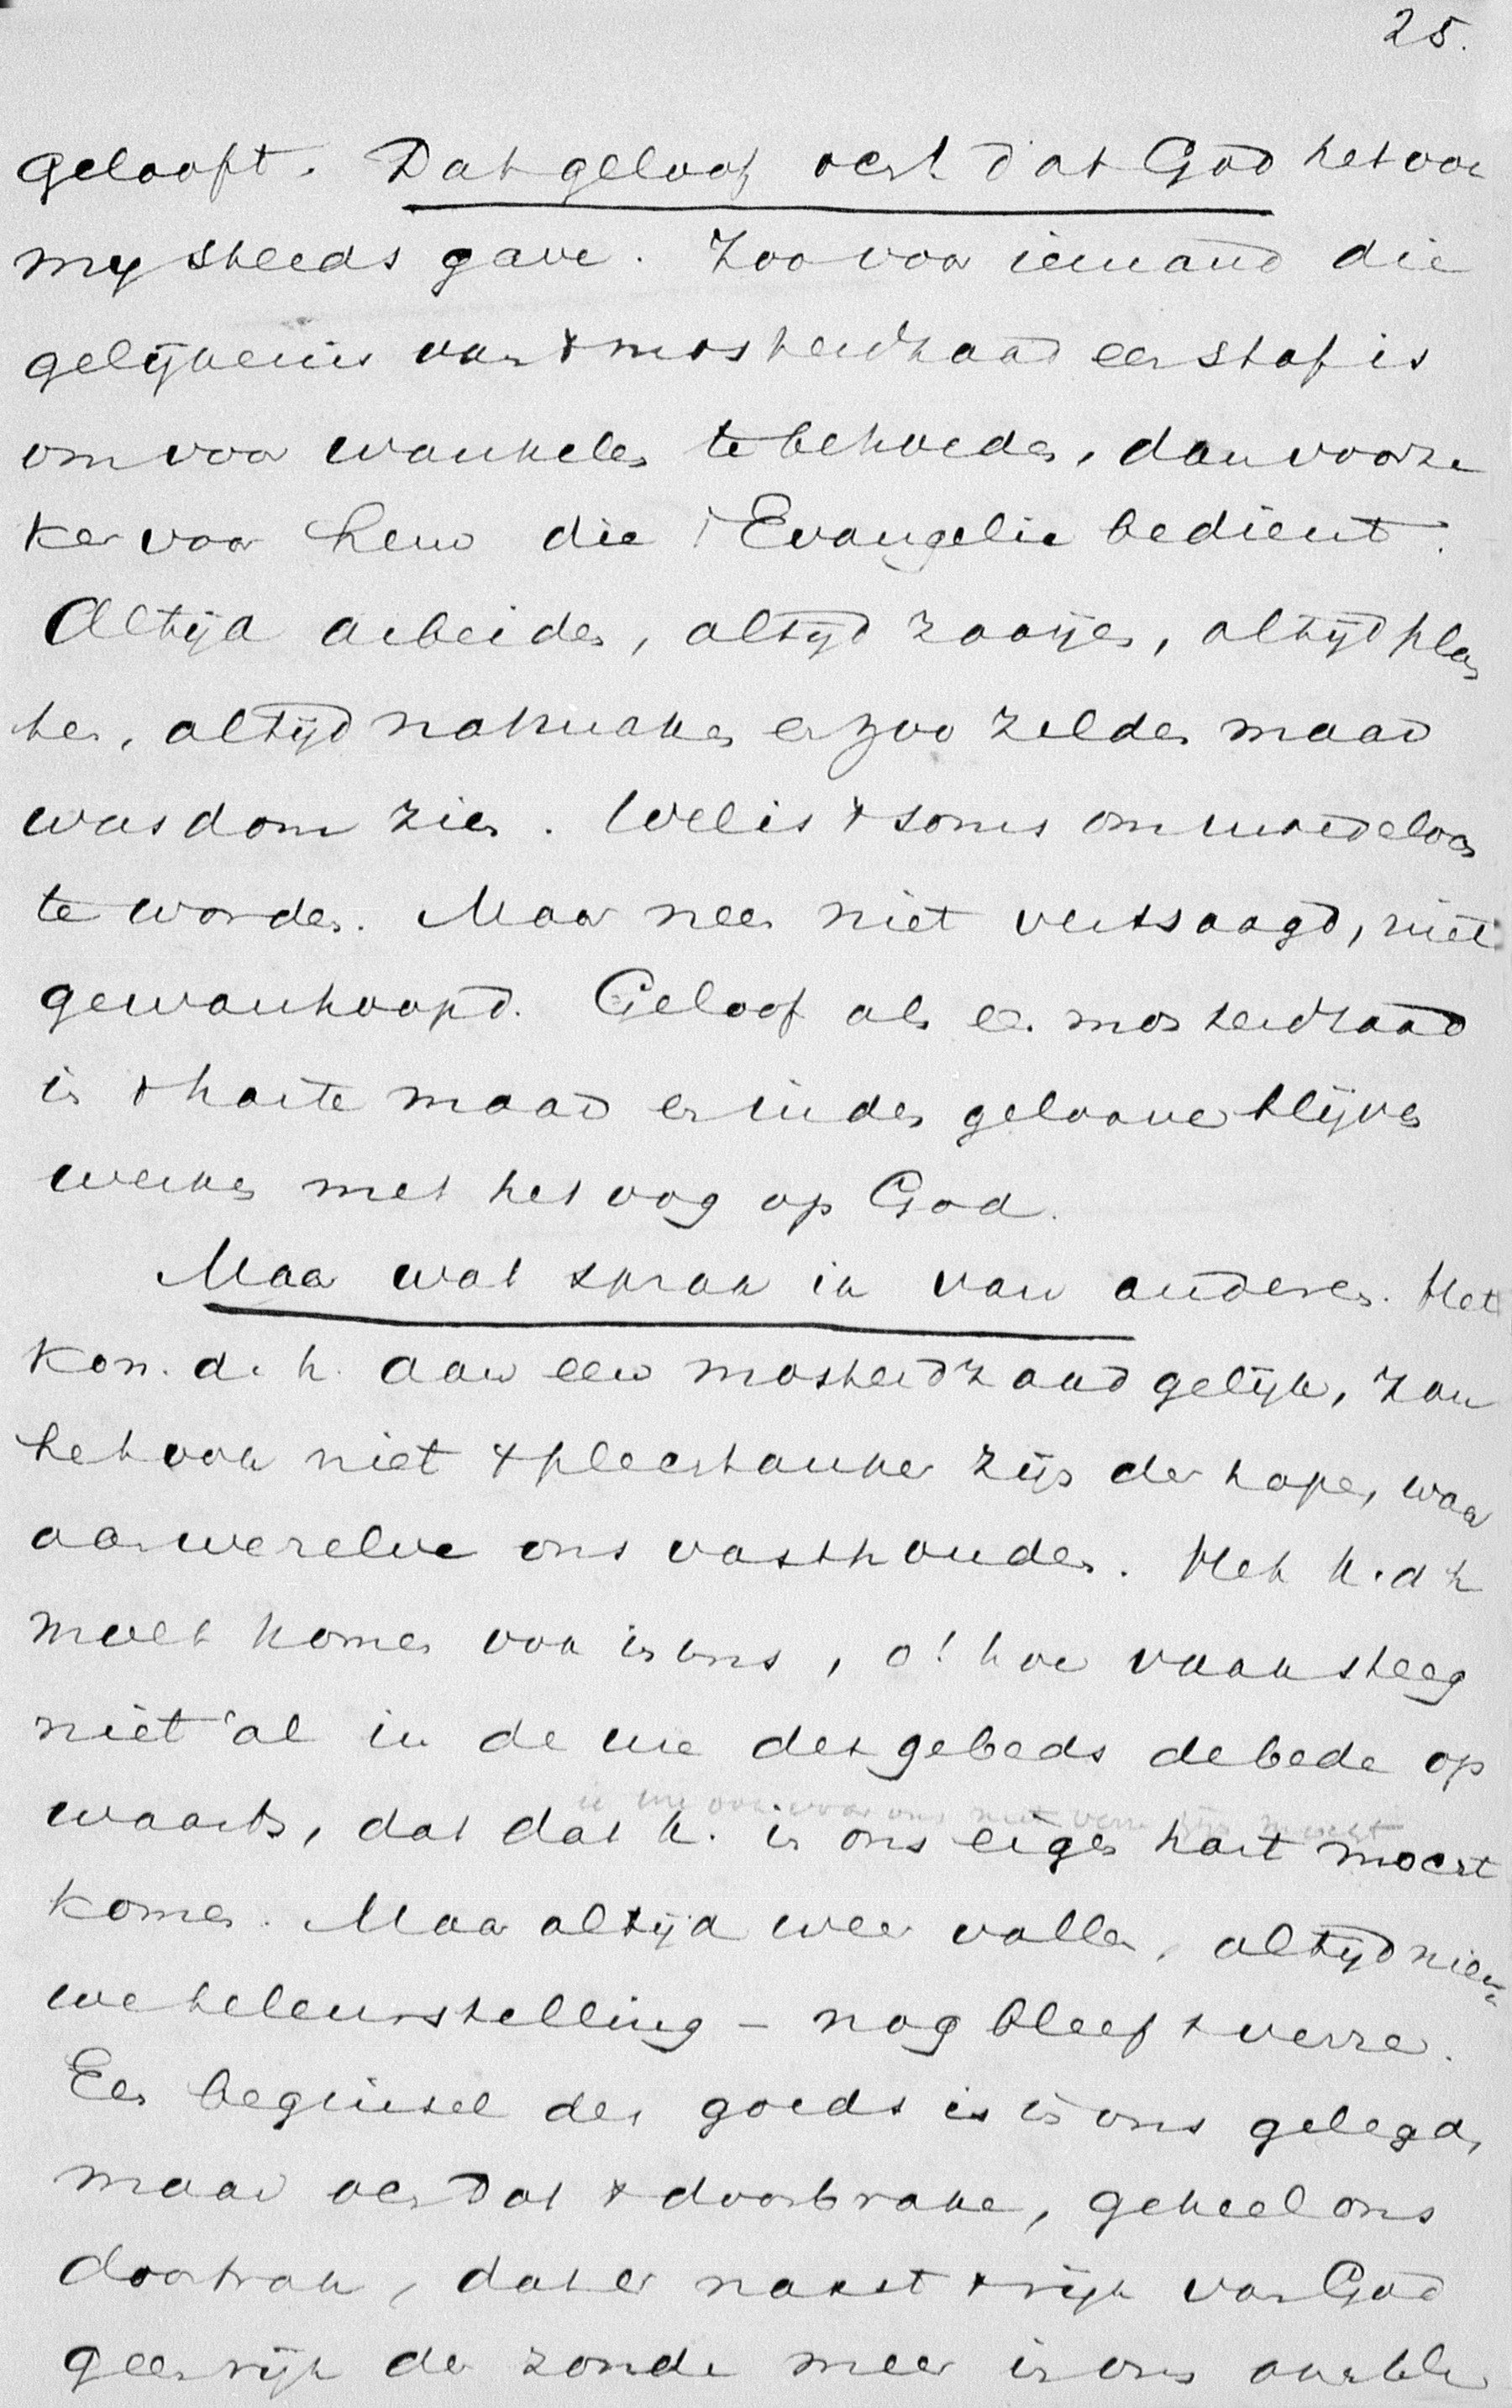 25.
gelooft. Dat geloof och dat God het ook
my steeds gave. Zoo voor iemand die
gelijkenis van 't mosterdzaad een staf is
om voor wankelen te behoeden, dan voorze
ker voor hem die 't Evangelie bedient.
Altijd arbeiden, altijd zaaijen, altijd plan
ten, altijd natmaken en zoo zelden maar
wasdom zien. Wel is 't soms om moedeloos
te worden. Maar neen niet vertsaagd, niet
gewanhoopd. Geloof als een mosterdzaad
is 't harte maar en in den geloove blijven
werken met het oog op God.
Maar wat sprak ik van anderen. Het
kon. d. h. aan een mosterdzaad gelijk, zou
het ook niet 't plechtanker zijn der hope, waar
aan we zelve ons vasthouden. Het k. d h
moet komen ook in ons, o! hoe vaak steeg
niet al in de ure des gebeds de bede op
waarts, dat dat k. in ons eigen hart moest
ook voor ons niet verre zijn mocht
komen. Maar altijd weer vallen, altijd nieu
we teleurstelling - nog bleef 't verre.
Een beginsel des goeds is in ons gelegd,
maar och dat 't doorbrake, geheel ons
doortrok, dat er naast 't rijk van God
geen rijk der zonde meer in ons overble